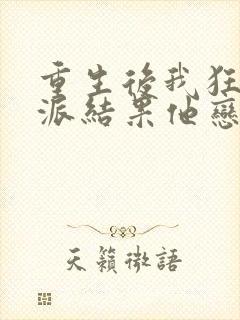 重生後我狂
派結果他戀
天籟微語